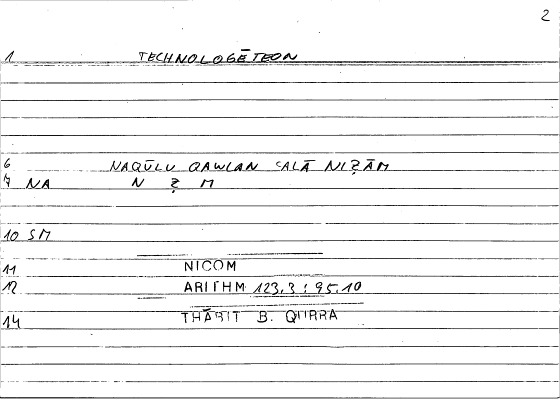 2
1 TECHNOLOGĒTEON
6 NAQŪLU QAWLAN ʿALĀ NIẒĀM
7 NA N Ẓ M
10 SM
11 NICOM
12 ARITHM 123,3 : 95,10
14 THĀBIT B. QURRA